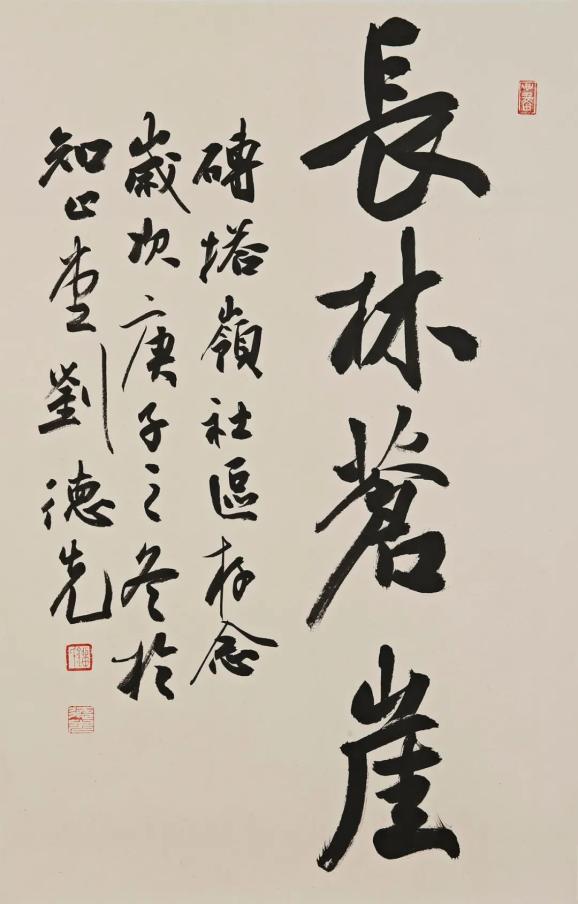 長林蒼崖
磚塔嶺社區存念
歲次庚子之冬於
知止堂劉德先